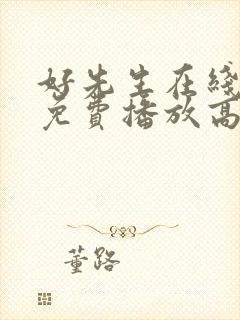 好先生在线
免费播放高
董路